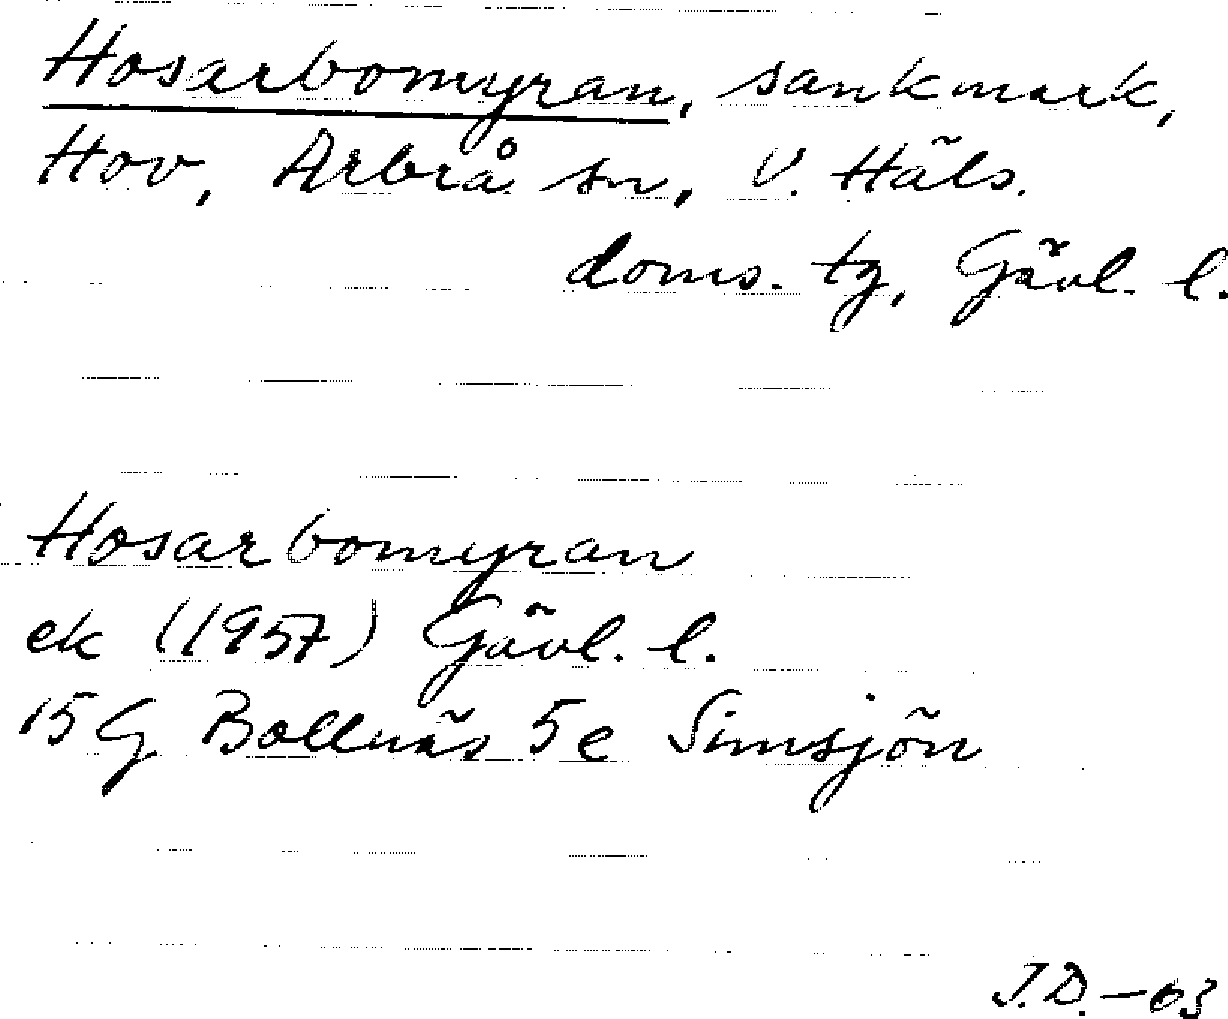 Hosarbomyran, sankmark,
Hov, Arbrå sn, V. Häls.
doms. tg, Gävl. l.
Hosarbomyran
ek (1957) Gävl. l.
15G Bollnäs 5e Simsjön
J.D. - 63